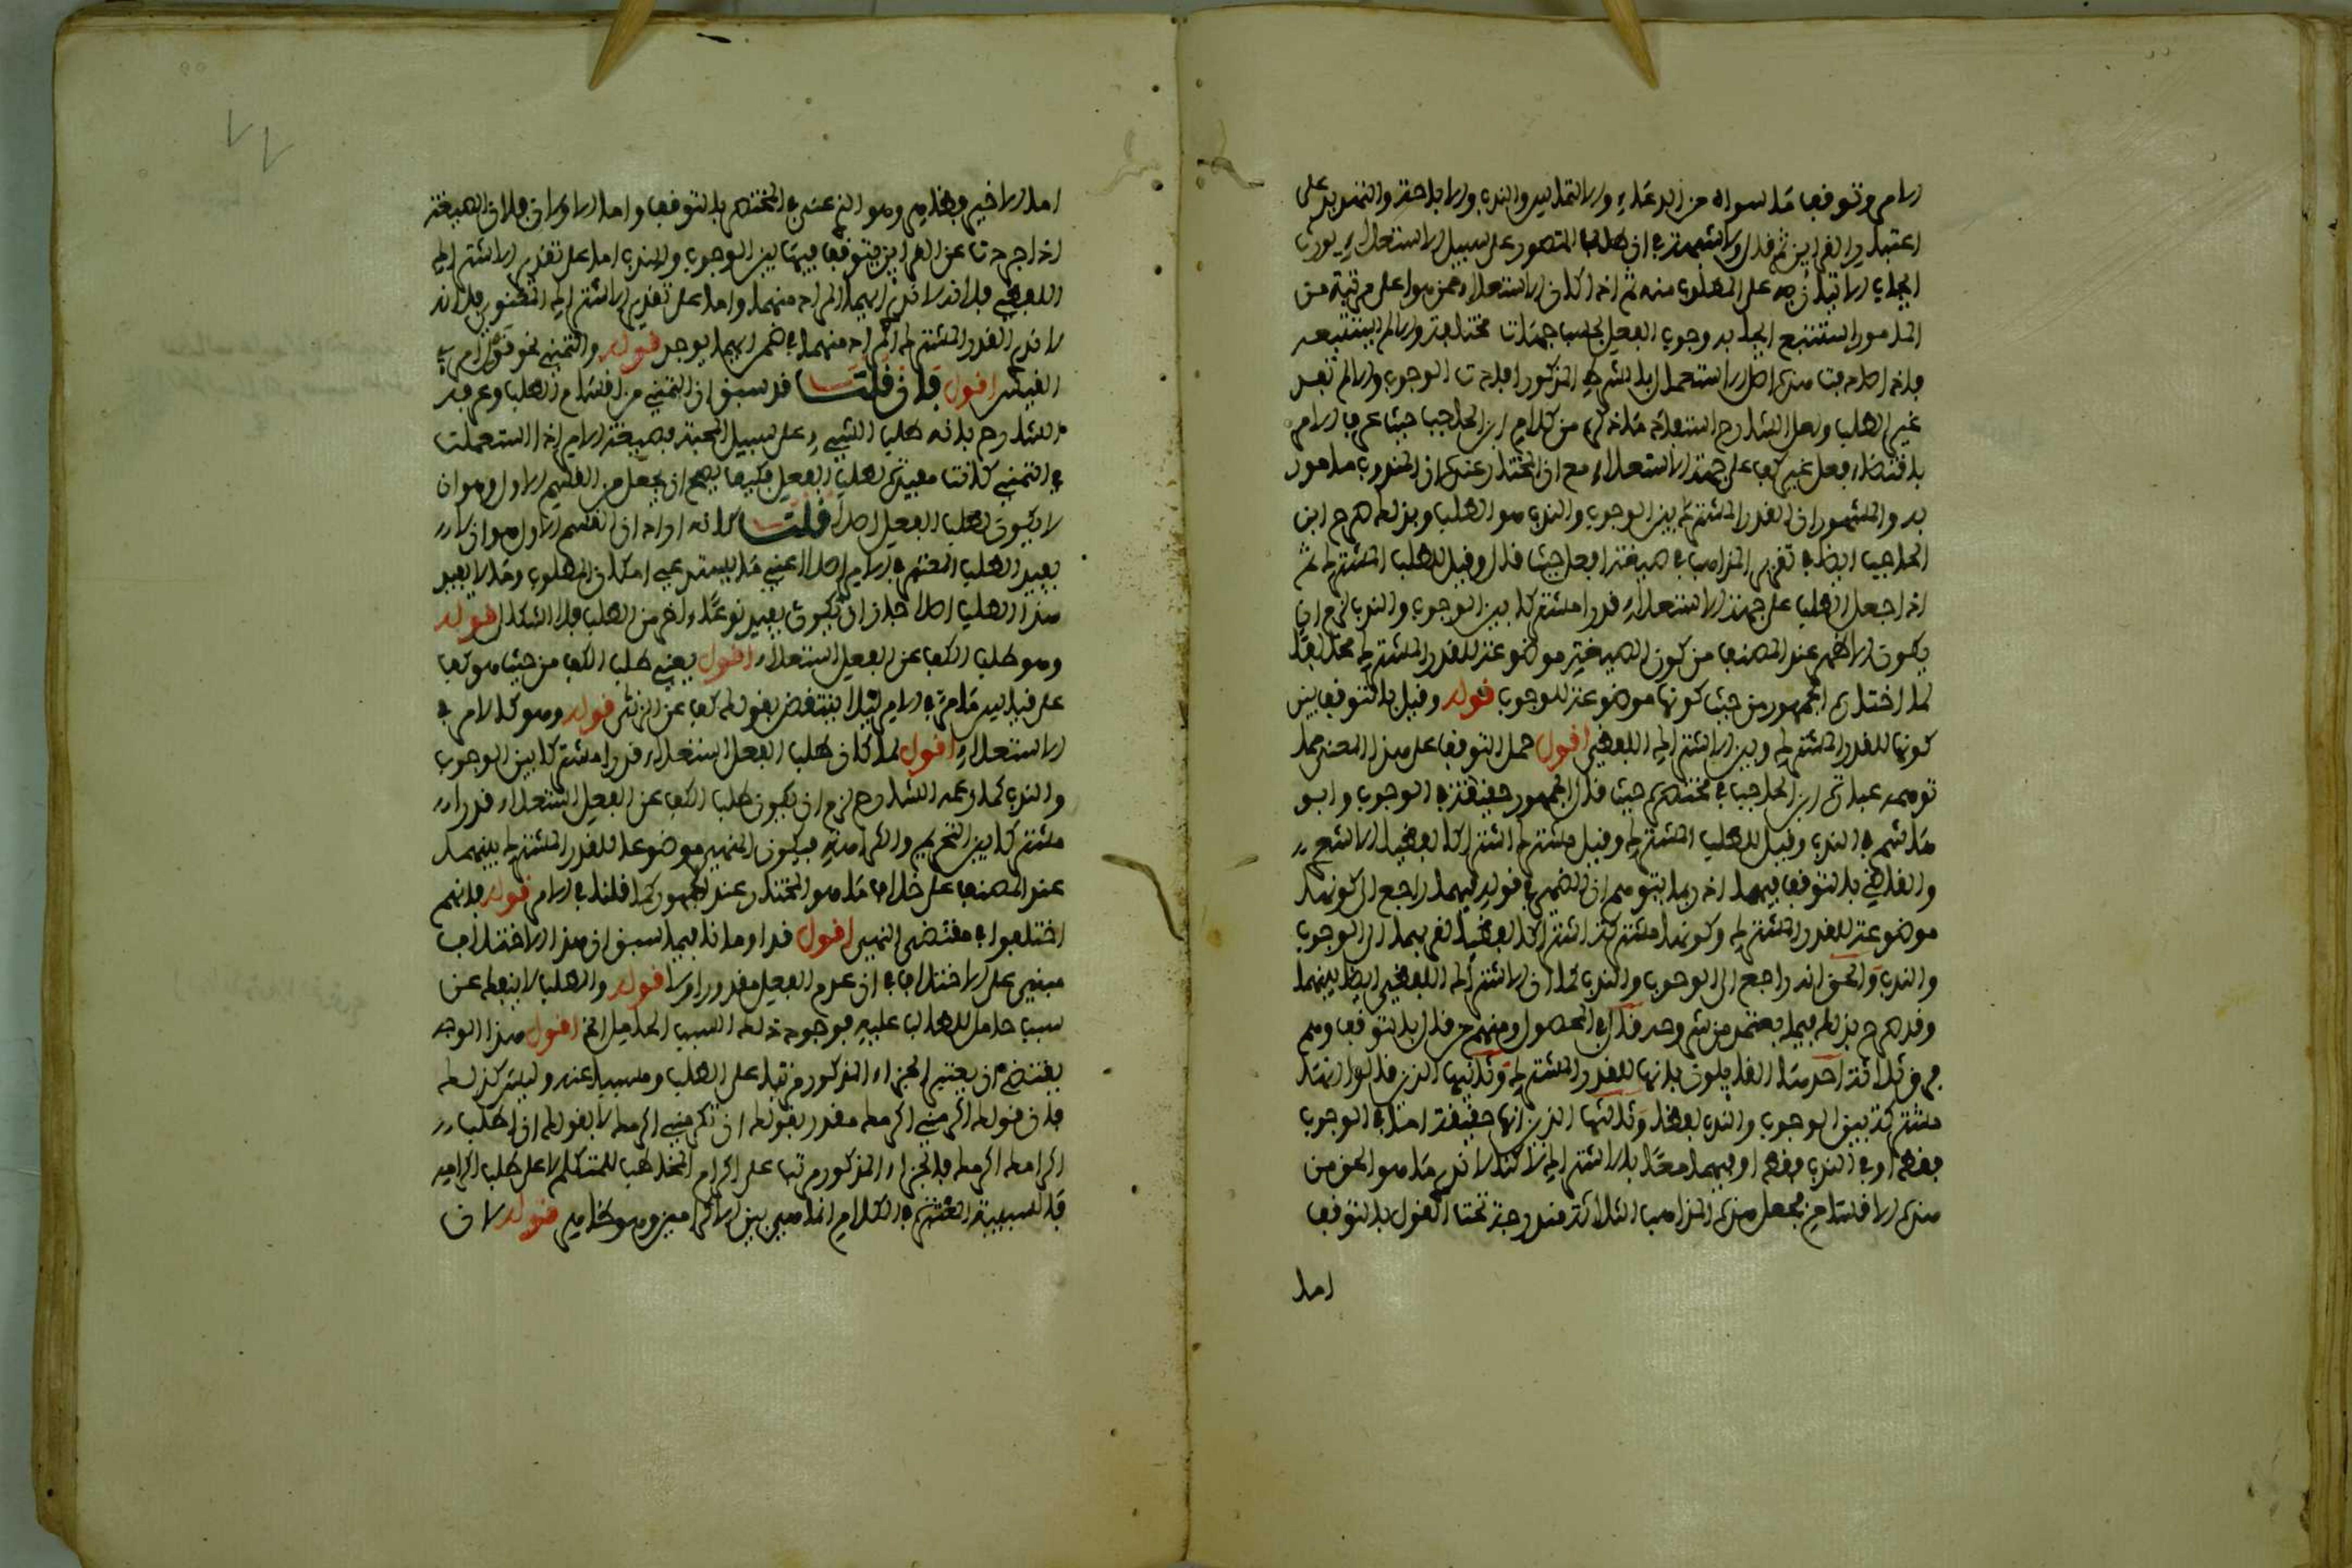 الامر وتوقف ما سواه من الدعاء والالتماس والندب والاباحة والتهديد على
اعتبار القراين ثم قال ولا شبهة في ان طلب المتصور على سبيل الاستعلاء يورث
ايجاب الاتيان به على المطلوب منه ثم اذا كان الاستعلاء ممن هو اعلى مرتبة من
المامور استتبع ايجابه وجوب الفعل بحسب جهات مختلفة والا لم يستتبعه
فاذا صادفت هذه اصل الاستعمال بالشرط المذكور افادت الوجوب والا لم تفد
غير الطلب ولعل الشارح استفاد ما ذكره من كلام ابن الحاجب حيث عرف الامر
باقتضاء فعل غير كف على جهة الاستعلاء مع ان المختار عنده ان المندوب مامور
به والمشهور ان القدر المشترك بين الوجوب والندب هو الطلب وبذلك صرح ابن
الحاجب ايضا في تقرير المذاهب في صيغة افعل حيث قال وقيل للطلب المشترك ثم
اذا جعل الطلب على جهة الاستعلاء قدرا مشتركا بين الوجوب والندب لزم ان
يكون الاظهر عند المصنف من كون الصيغة موضوعة للقدر المشترك مخالفا
لما اختاره الجمهور من حيث كونها موضوعة للوجوب قوله وقيل بالتوقف بين
كونها للقدر المشترك وبين الاشتراك اللفظي اقول حمل التوقف على هذا المعنى مما
توهمه عبارة ابن الحاجب في مختصره حيث قال الجمهور حقيقة في الوجوب وابو
هاشم في الندب وقيل للطلب المشترك وقيل مشترك اشتراكا لفظيا الاشعري
والقاضي بالتوقف فيهما اذ ربما يتوهم ان الضمير في قوله فيهما راجع الى كونها
موضوعة للقدر المشترك وكونها مشتركة اشتراكا لفظيا لقربهما الى الوجوب
والندب والحق انه راجع الى الوجوب والندب كما ان الاشتراك اللفظي ايضا بينهما
وقد صرح بذلك فيما يعتمد من شروحه قال في المحصول ومنهم من قال بالتوقف وهم
فرق ثلاثة احدها القايلون بانها للقدر المشترك وثانيها الذين قالوا انها
مشتركة بين الوجوب والندب لفظا وثالثها الذين انها حقيقة اما في الوجوب
فقط او في الندب فقط او فيهما معا بالاشتراك لاكنا لا ندري ما هو الحق من
هذه الاقسام فجعل هذه المذاهب الثلاثة مندرجة تحت القول بالتوقف
اما
اما الاخير فظاهر وهو الذي عنى في المختصر بالتوقف واما الاولان فلان الصيغة
اذا جردت عن القراين يتوقف فيها بين الوجوب والندب اما على تقدير الاشتراك
اللفظي فلانه لا ندري ايهما المراد منهما واما على تقدير الاشتراك المعنوي فلانه
لا ندري القدر المشترك المراد منهما في ضمن ايهما يوجد قوله والتمني نحو قول امرئ
القيس اقول فان قلت قد سبق ان التمني من اقسام الطلب وعرفه
الشارح بانه طلب الشيء على سبيل المحبة فصيغة الامر اذا استعملت
في التمني كانت مفيدة لطلب الفعل فكيف يصح ان يجعل من القسم الاول وهو ان
لا يكون لطلب الفعل اصلا قلت كانه اراد ان القسم الاول هو ان لا
يفيد الطلب المعتبر في الامر اصلا اعني ما يستدعي امكان المطلوب وما لا يفيد
هذا الطلب اصلا جاز ان يكون يفيد نوعا اخر من الطلب فلا اشكال قوله
وهو طلب الكف عن الفعل استعلاء اقول يعني طلب الكف من حيث هو كف
على قياس ما مر في الامر لئلا ينتقض بقولك كف عن الزنى قوله وهو كالامر في
الاستعلاء اقول لما كان طلب الفعل استعلاء قدرا مشتركا بين الوجوب
والندب كما زعمه الشارح لزم ان يكون طلب الكف عن الفعل استعلاء قدرا
مشتركا بين التحريم والكراهة فيكون النهي موضوعا للقدر المشترك بينهما
عند المصنف على خلاف ما هو المختار عند الجمهور كما قلنا في الامر قوله فانهم
اختلفوا في مقتضى النهي اقول قد اومانا فيما سبق ان هذا الاختلاف
مبني على الاختلاف في ان عدم الفعل مقدور او لا قوله والطلب لا ينفك عن
سبب حامل للطالب عليه فوجود ذلك السبب الحامل الخ اقول هذا الوجه
يقتضي ان يعتبر الجزاء المذكور مرتبا على الطلب ومسببا عنه وليس كذلك
فان قولك اكرمني اكرمك مقدر بقولك ان تكرمني اكرمك لا بقولك ان اطلب
اكرامك اكرمك فالجزاء المذكور مرتب على اكرام المخاطب للمتكلم لا على طلب اكرامه
فالسببية المعتبرة في الكلام انما هي بين الاكرامين وهو ظاهر قوله لان